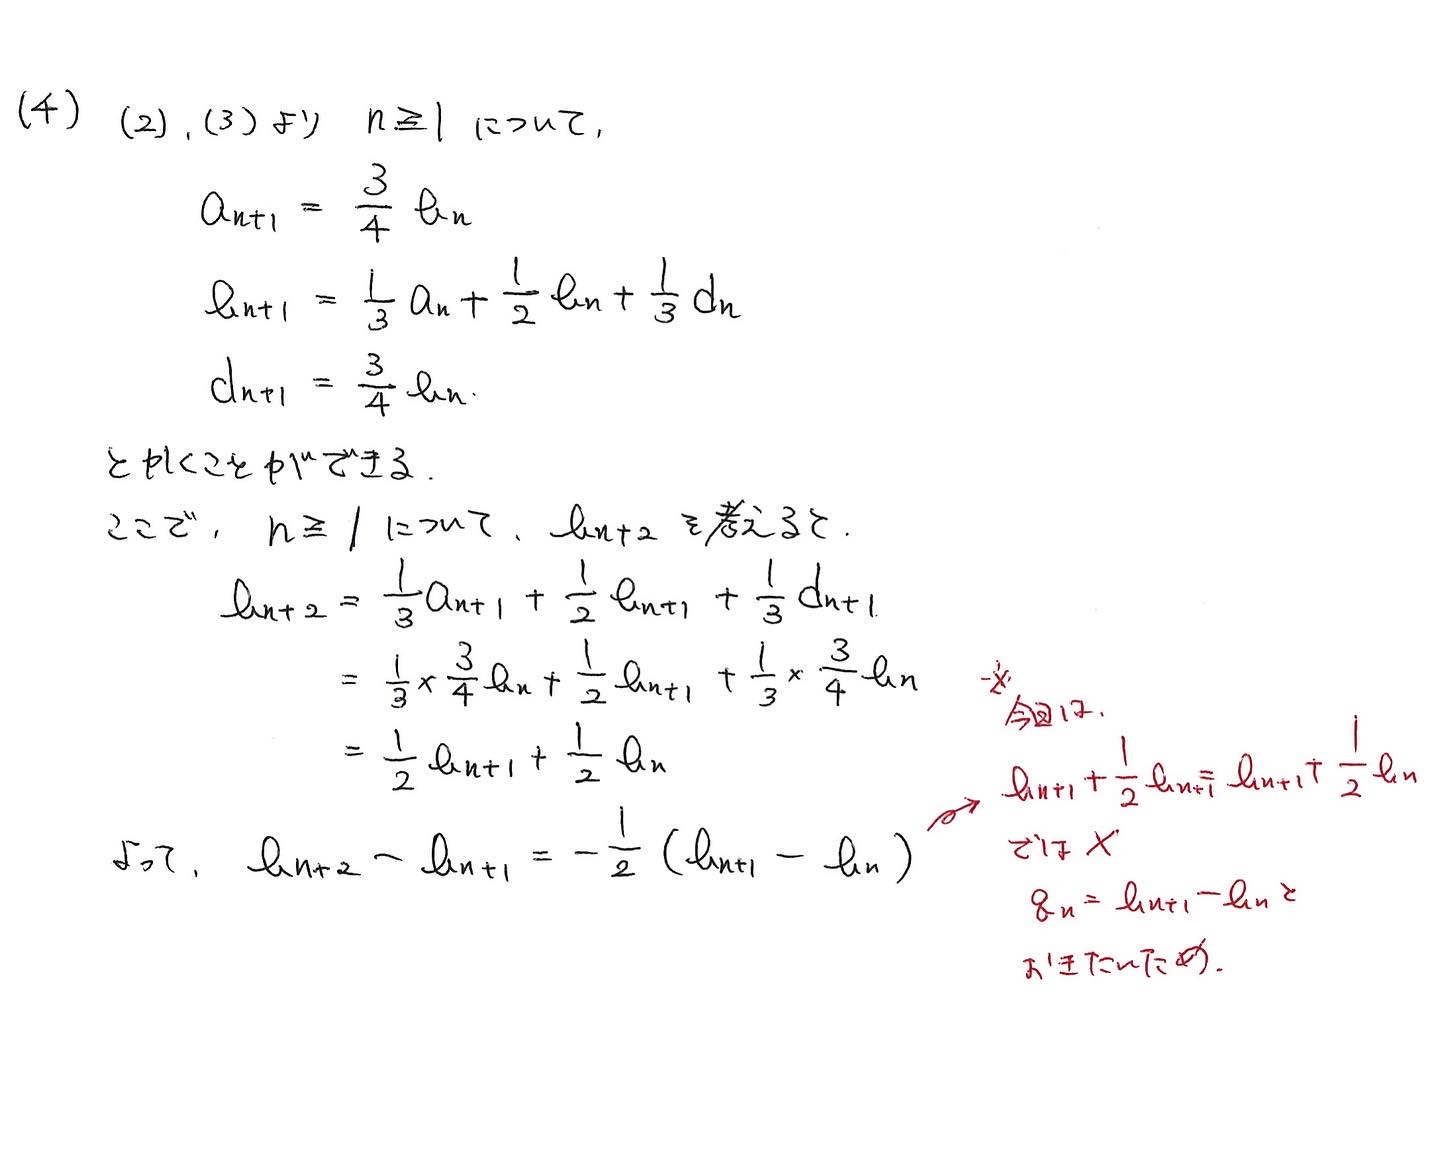 (4) (2), (3)より n≧1 について,
a_{n+1} = \frac{3}{4} b_n
b_{n+1} = \frac{1}{3} a_n + \frac{1}{2} b_n + \frac{1}{3} d_n
d_{n+1} = \frac{3}{4} b_n.
とかくことができる.
ここで, n≧1 について, b_{n+2} を考えると.
b_{n+2} = \frac{1}{3} a_{n+1} + \frac{1}{2} b_{n+1} + \frac{1}{3} d_{n+1}
= \frac{1}{3} × \frac{3}{4} b_n + \frac{1}{2} b_{n+1} + \frac{1}{3} × \frac{3}{4} b_n
= \frac{1}{2} b_{n+1} + \frac{1}{2} b_n
よって, b_{n+2} - b_{n+1} = -\frac{1}{2} (b_{n+1} - b_n)
※
今回は,
b_{n+1} + \frac{1}{2} b_{n+1} = b_{n+1} + \frac{1}{2} b_n
では×
q_n = b_{n+1} - b_n と
おきたいため.